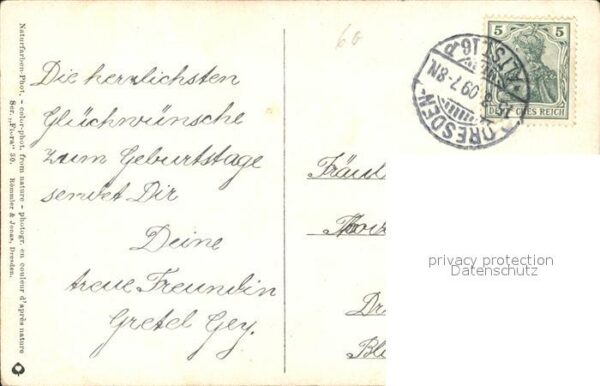 Naturfarben-Phot. - color-phot. from nature - photogr. en couleur d'après nature
Ser. „Flora" 30. Römmler & Jonas, Dresden.
Die herzlichsten
Glückwünsche
zum Geburtstage
sendet Dir
Deine
treue Freundin
Gretel Gey.
60
5 5
DEUTSCHES REICH
DRESDEN-ALTST. 16
09. 7-8N.
Fräul
Dr
Bl
privacy protection
Datenschutz